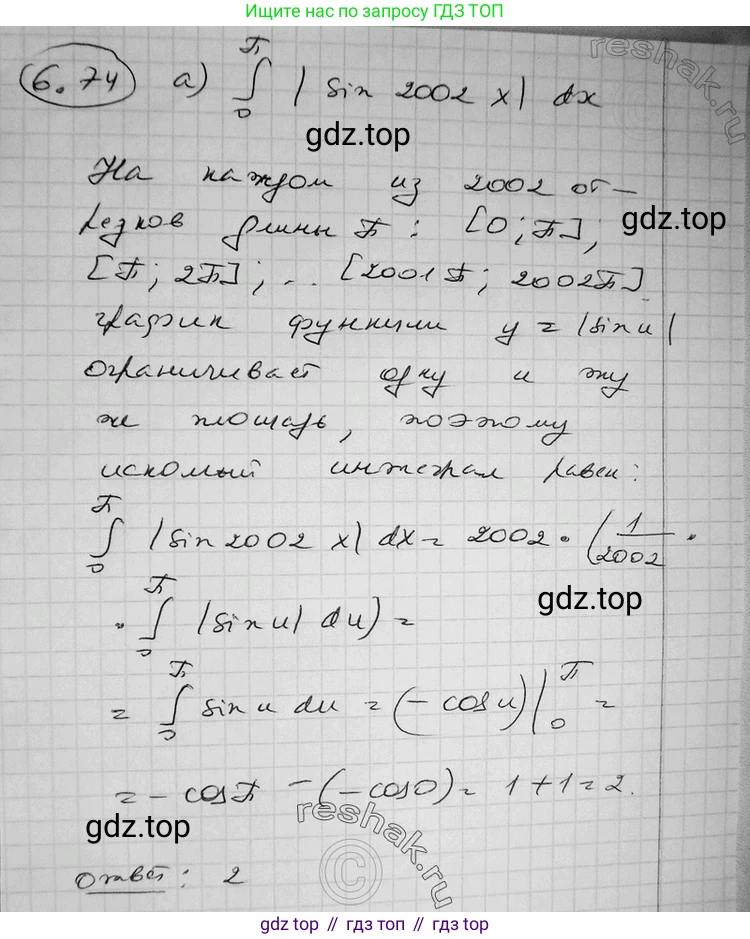 Ищите нас по запросу ГДЗ ТОП
reshak.ru
6.74 а) ∫₀^π |sin 2002 x| dx
gdz.top
На каждом из 2002 от-
резков длины π : [0; π];
gdz.top
[π; 2π]; ... [2001π; 2002π]
график функции y = |sin u|
ограничивает одну и ту
же площадь, поэтому
искомый интеграл равен:
∫₀^π |sin 2002 x| dx = 2002 · (1/2002 ·
· ∫₀^π |sin u| du) =
gdz.top
= ∫₀^π sin u du = (- cos u) |₀^π =
= - cos π - (- cos 0) = 1 + 1 = 2.
gdz.top
reshak.ru
©
Ответ: 2
gdz.top // гдз топ // gdz.top